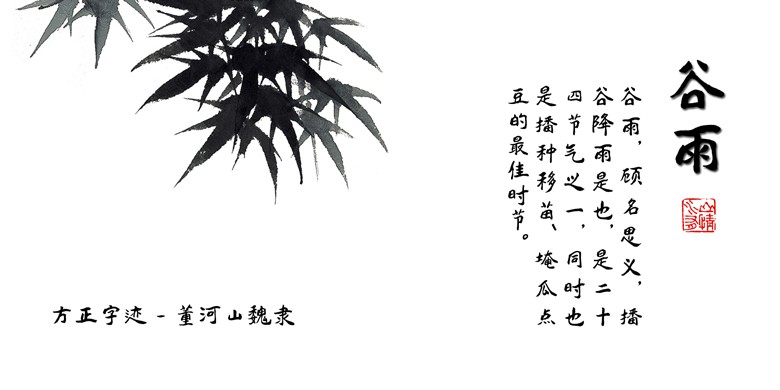 谷雨
谷雨，顾名思义，播
谷降雨是也，是二十
四节气之一，同时也
是播种移苗、埯瓜点
豆的最佳时节。
方正字迹 - 董河山魏隶